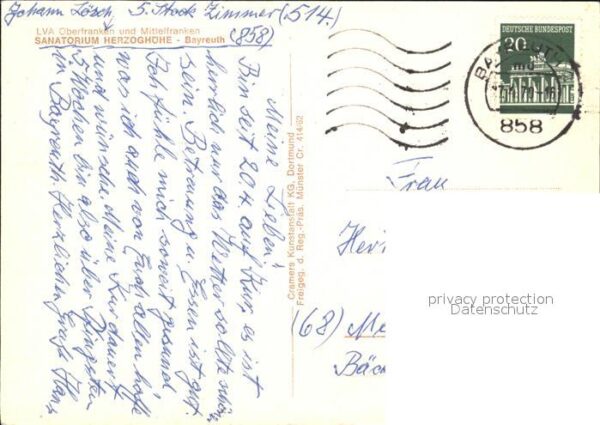 Johann Lösch, 5. Stock Zimmer (514.)
LVA Oberfranken und Mittelfranken
SANATORIUM HERZOGHÖHE - Bayreuth
(858)
Meine Lieben!
Bin seit 20.4. auf Kur, es ist
herrlich nur das Wetter sollte schöner
sein. Betreuung u. Essen ist gut.
Ich fühle mich soweit gesund
was ich auch von Euch allen hoffe
und wünsche. Meine Kurdauer
5 Wochen bin also über Pfingsten
in Bayreuth. Herzlichen Gruß Hans
Cramers Kunstanstalt KG. Dortmund
Freigeg. d. Reg.-Präs. Münster Cr. 414/62
DEUTSCHE BUNDESPOST
20
858
Frau
(68)
privacy protection
Datenschutz